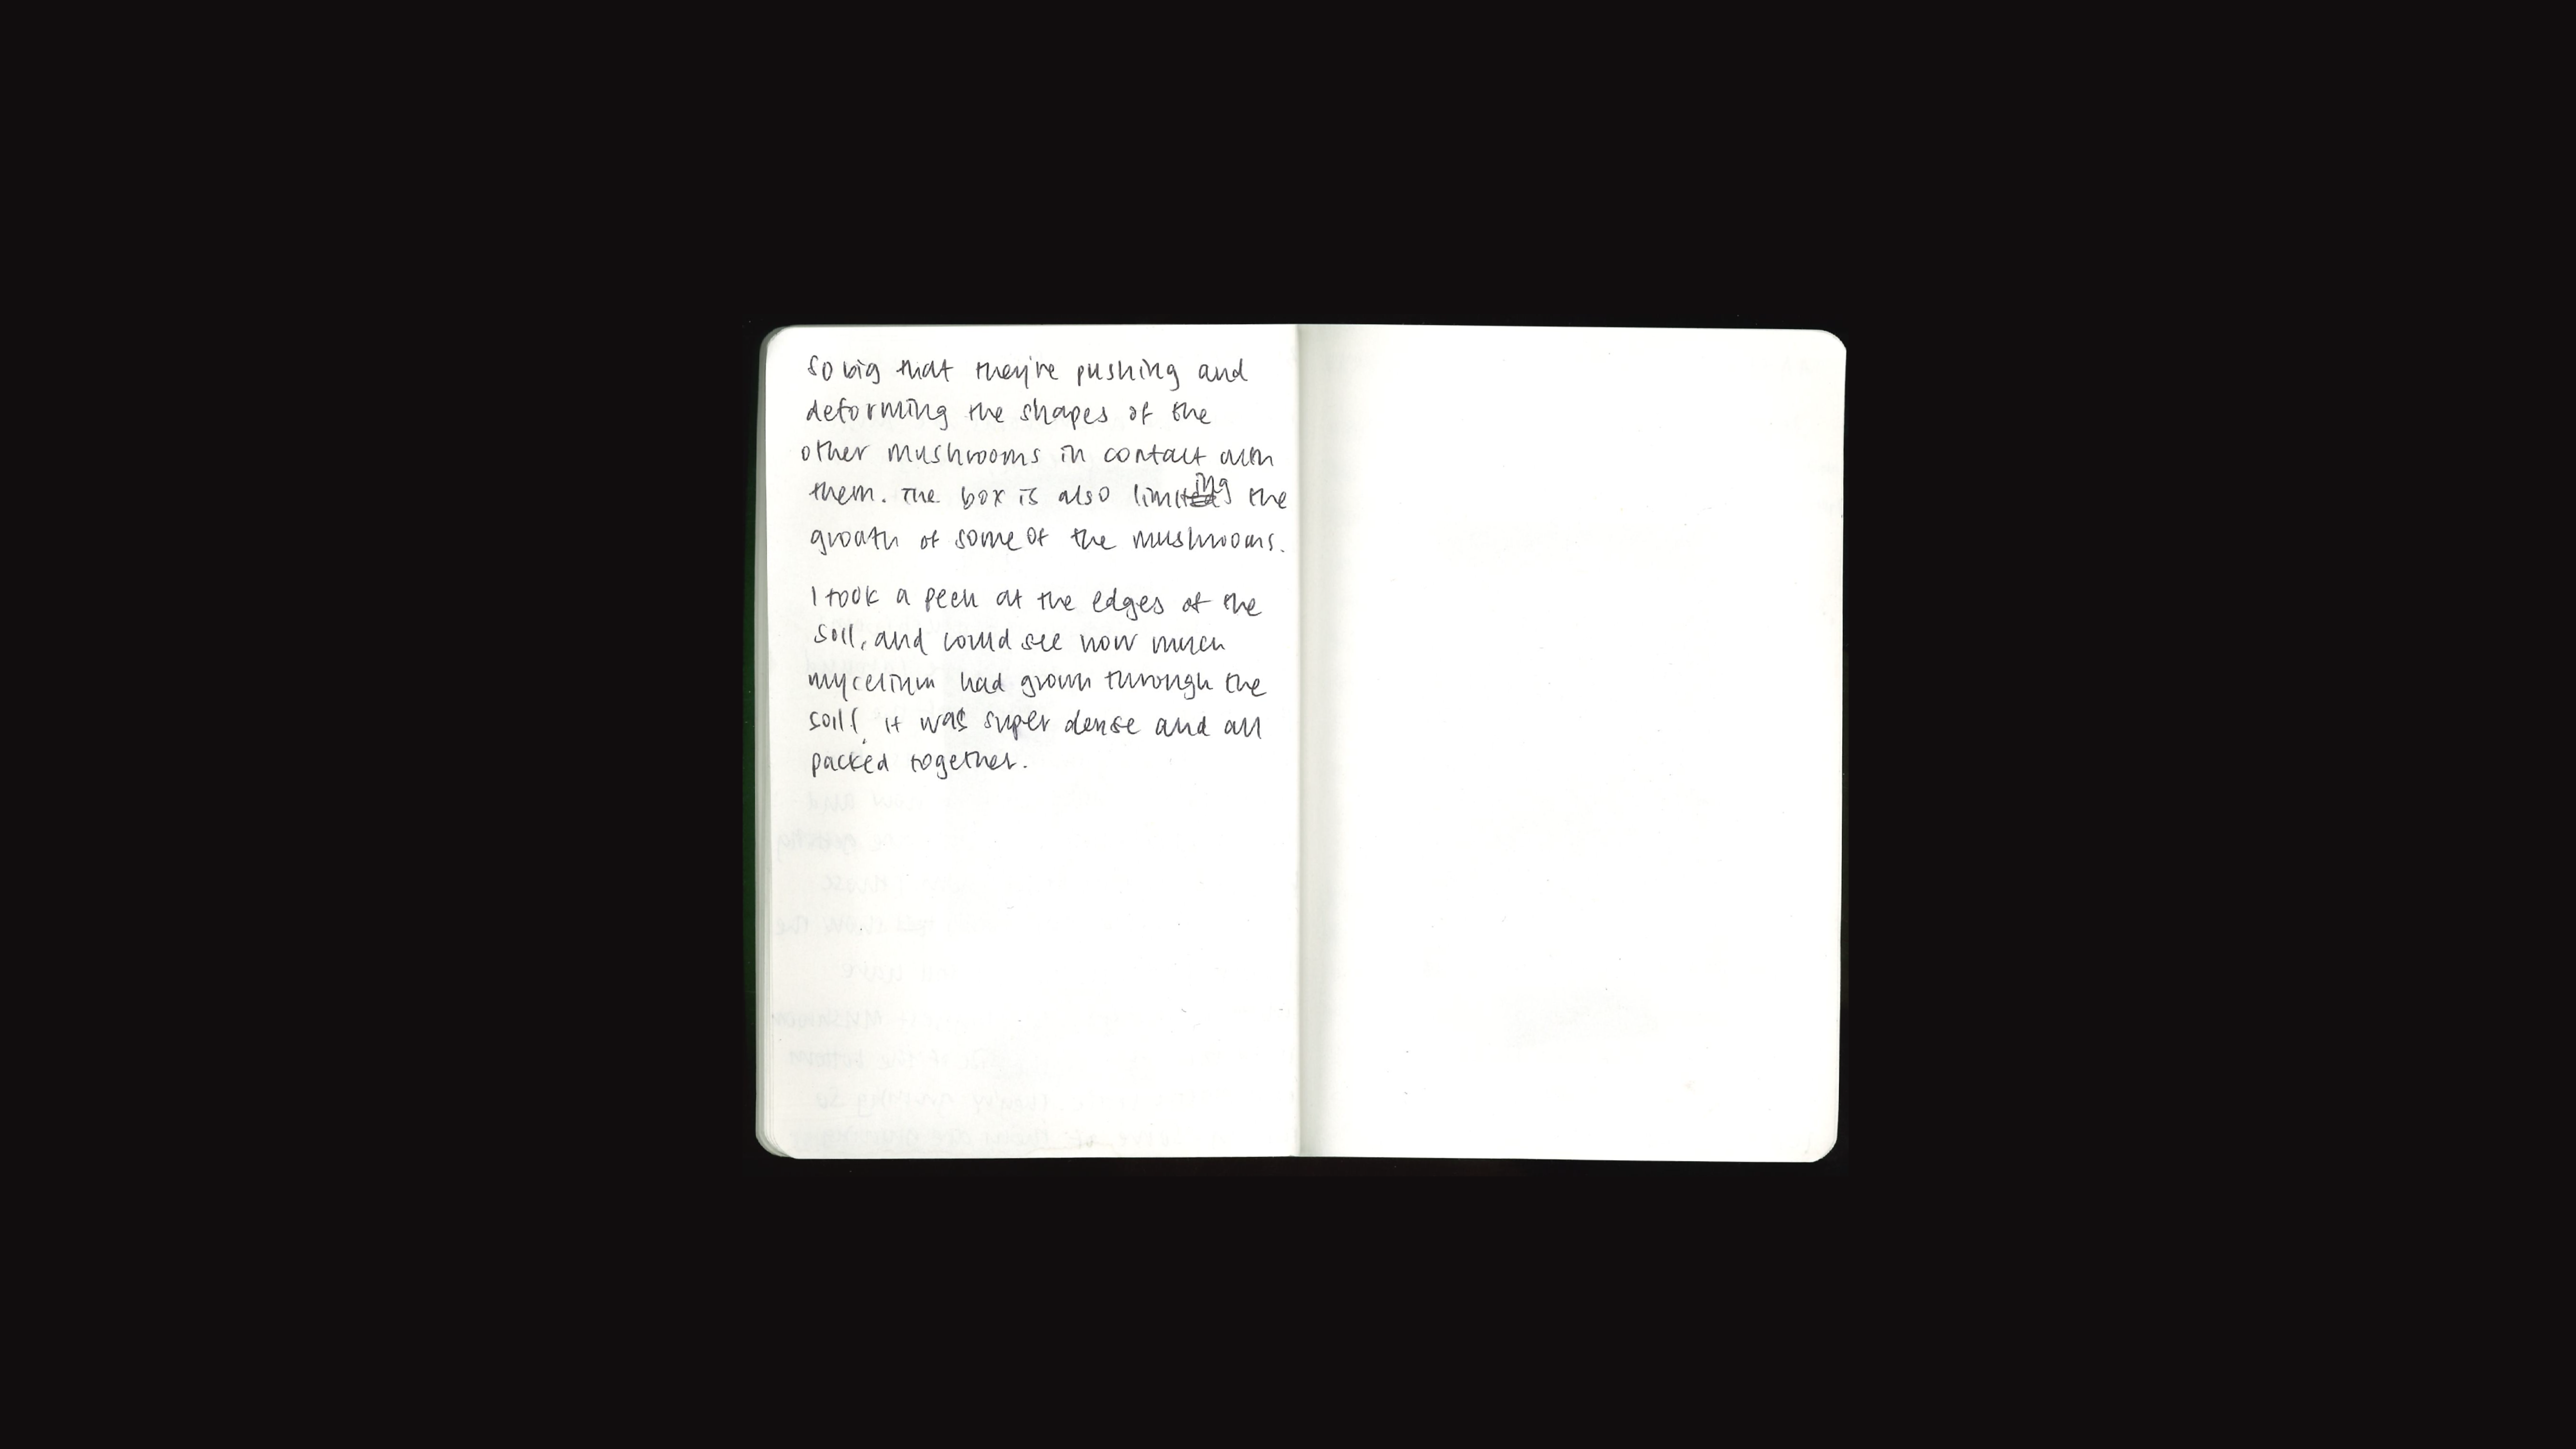 so big that they're pushing and
deforming the shapes of the
other mushrooms in contact with
them. The box is also limiting the
growth of some of the mushrooms.
I took a peek at the edges of the
soil, and could see how much
mycelium had grown through the
soil! it was super dense and all
packed together.